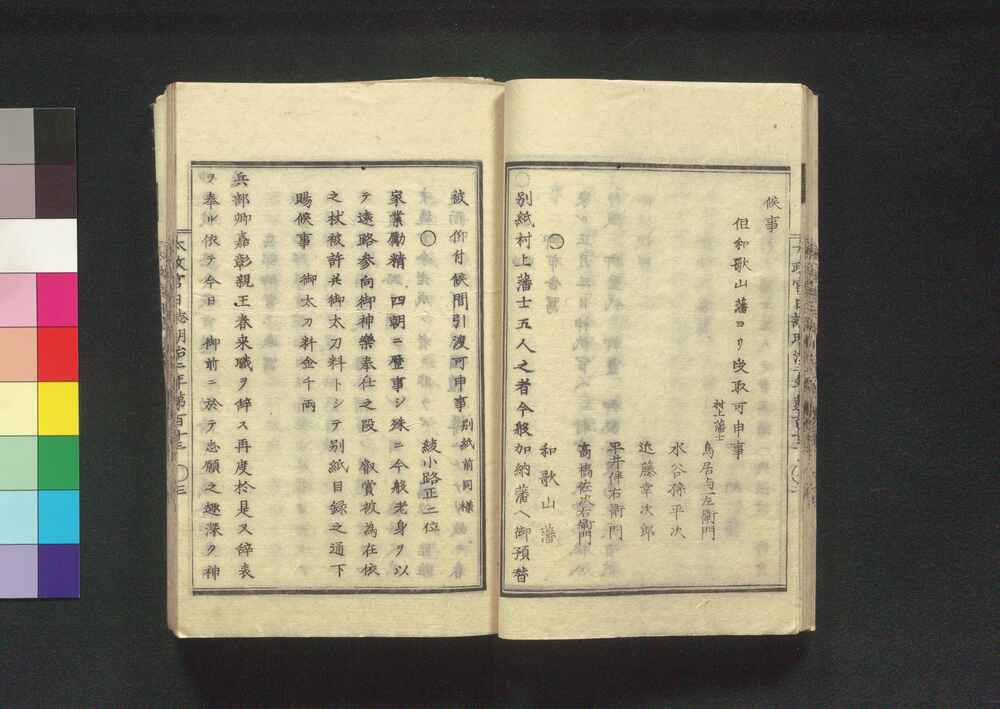 候事
但和歌山藩ヨリ受取可申事
村上藩士
鳥居与一左衛門
水谷孫平次
近藤幸次郎
平井伴右衛門
高橋佐次右衛門
〇
和歌山藩
別紙村上藩士五人之者今般加納藩ヘ御預替
被仰付候間引渡可申事
別紙前同様
〇
綾小路正二位
家業勵精 四朝ニ歴事シ殊ニ今般老身ヲ以
テ遠路参向御神樂奉仕之段 叡賞被為在依
之杖被許其御太刀料トシテ別紙目録之通下
賜候事
御太刀料金千両
兵部卿嘉彰親王春来職ヲ辞ス再度於是又辞表
ヲ奉ル依テ今日 御前ニ於テ忠願之趣深ク神
太政官日誌明治二年第百十三
〇三